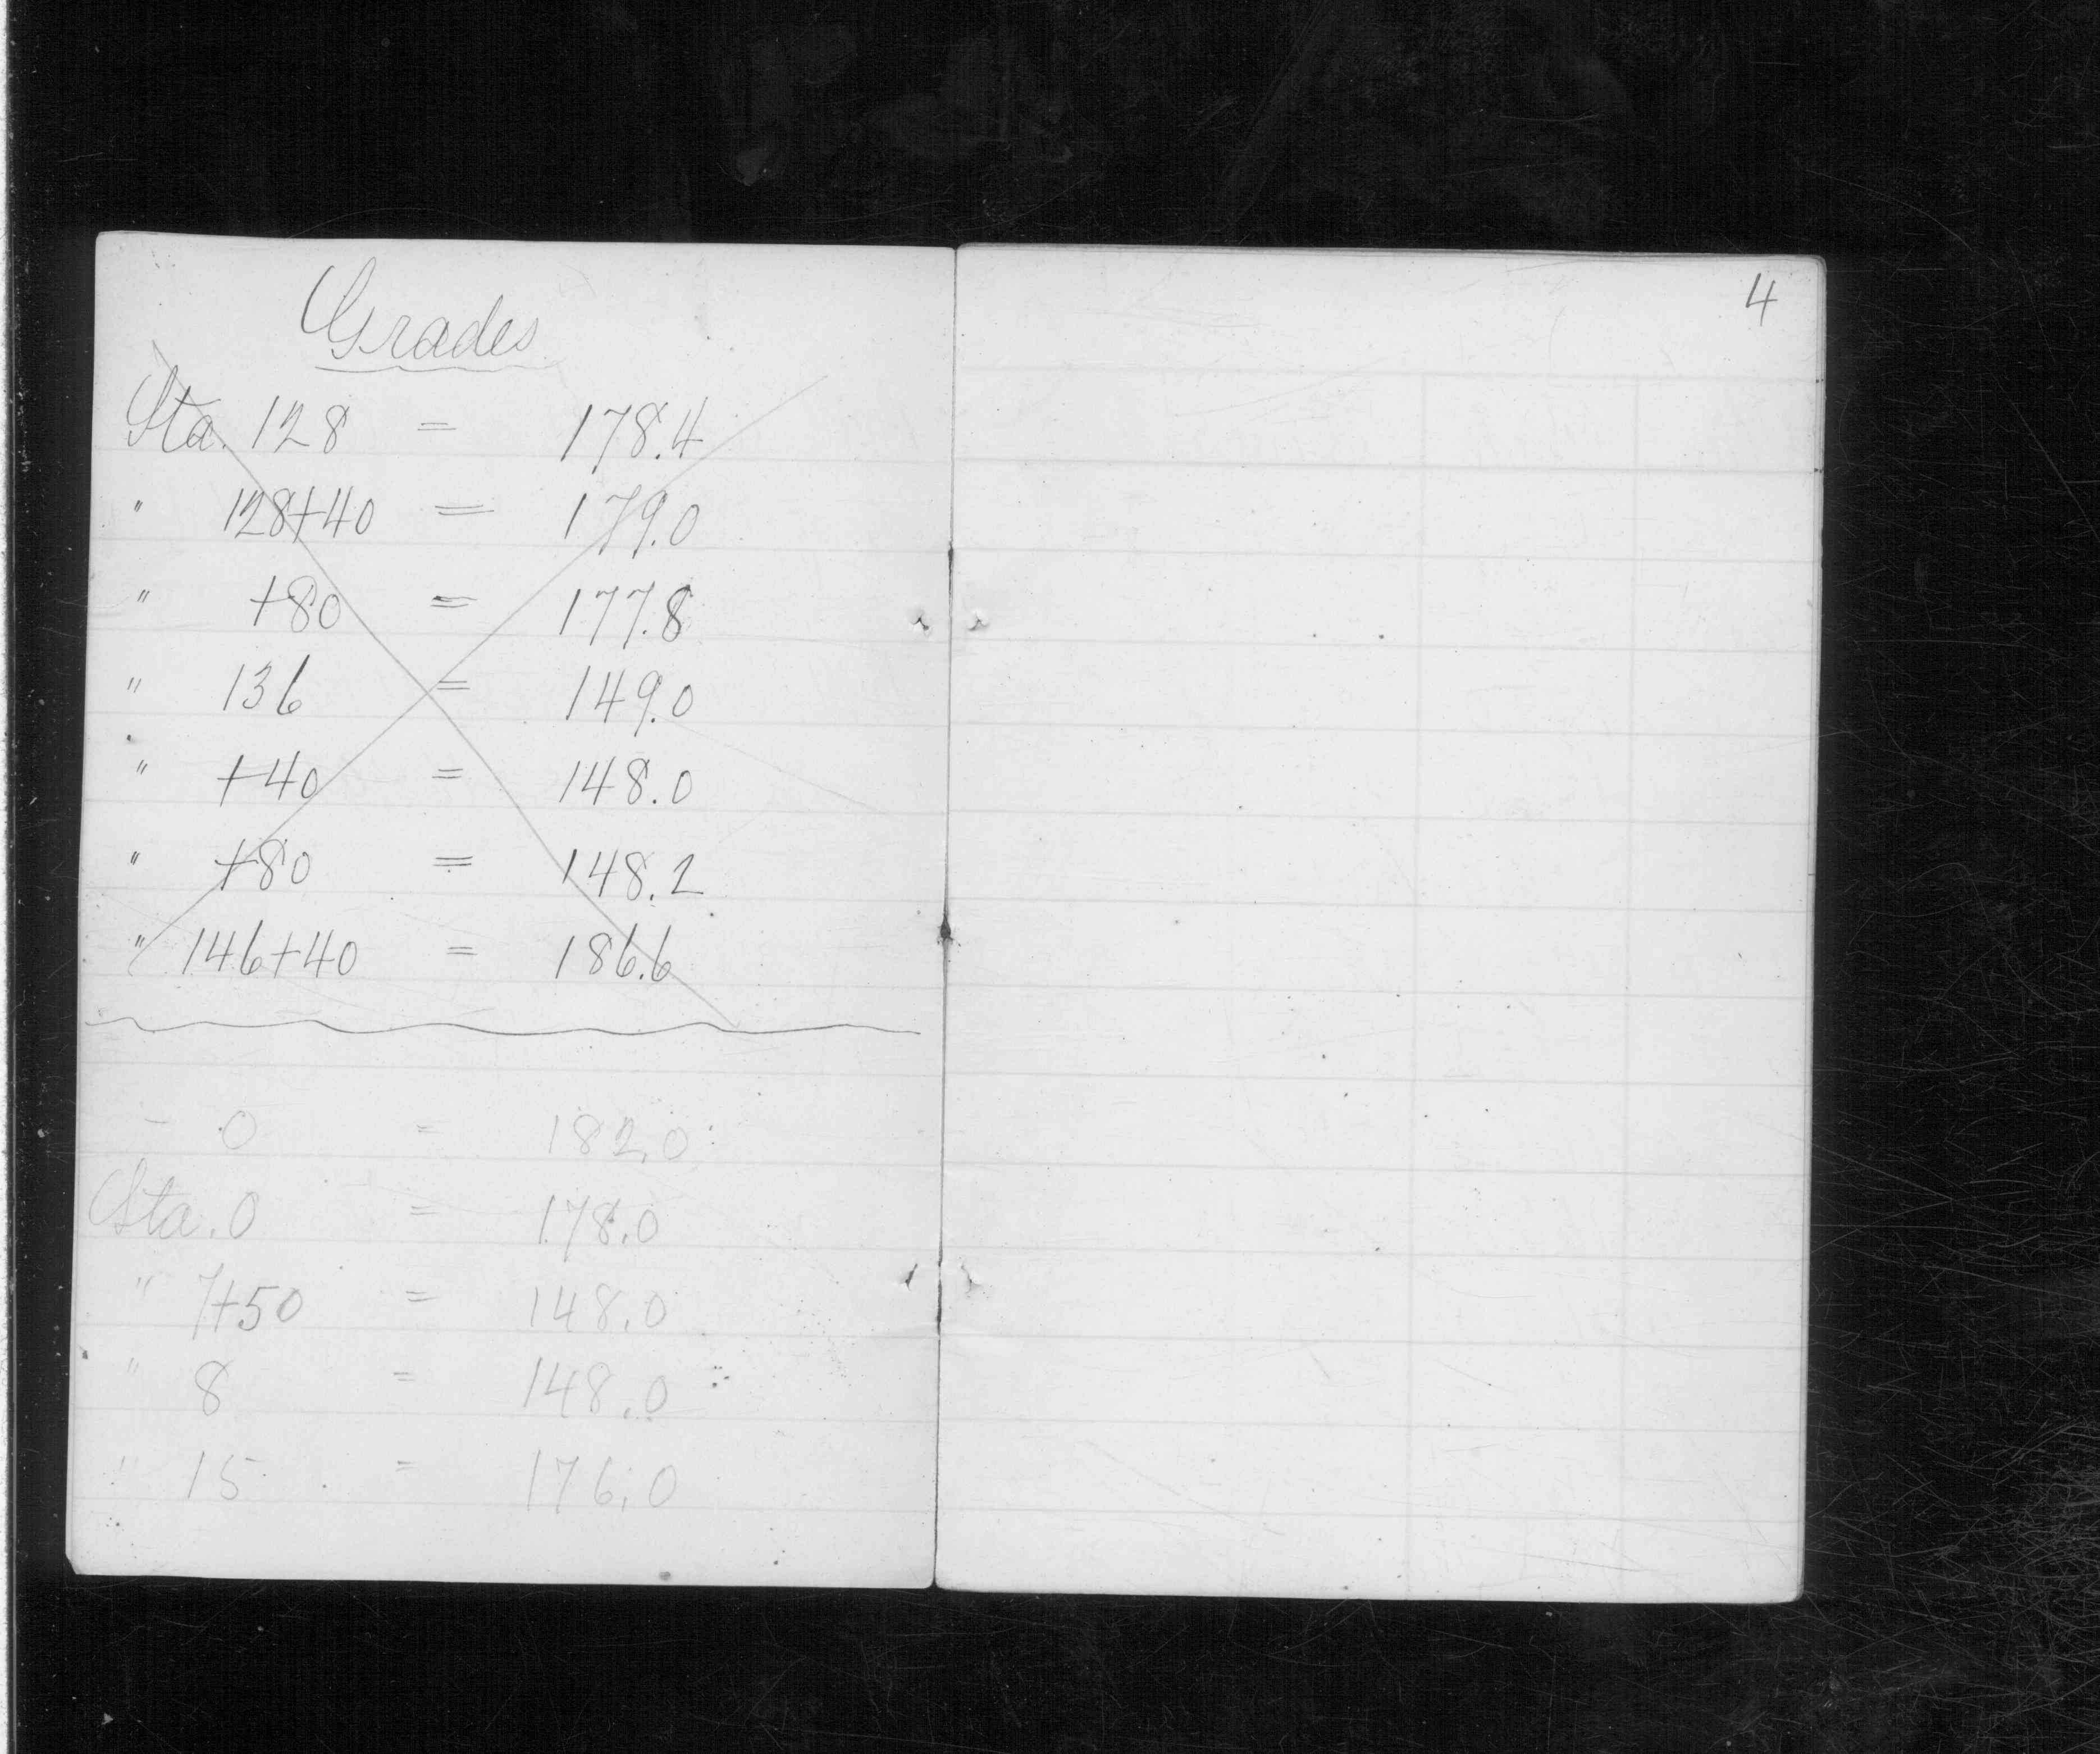 Grades
Sta. 128 = 178.4
" 128+40 = 179.0
" +80 = 177.8
" 136 = 149.0
" +40 = 148.0
" +80 = 148.2
" 146+40 = 186.6
- 0 = 182.0
Sta. 0 = 178.0
" 7+50 = 148.0
" 8 = 148.0
" 15 = 176.0
4